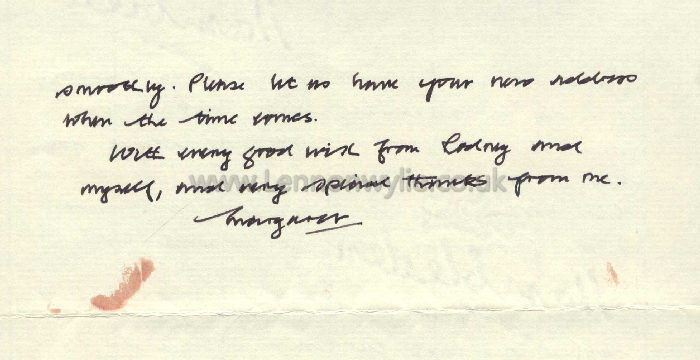 smoothly. Please let us have your new address
when the time comes.
With every good wish from Rodney and
myself, and very special thanks from me.
www.Lennonwylie.co.uk
Margaret